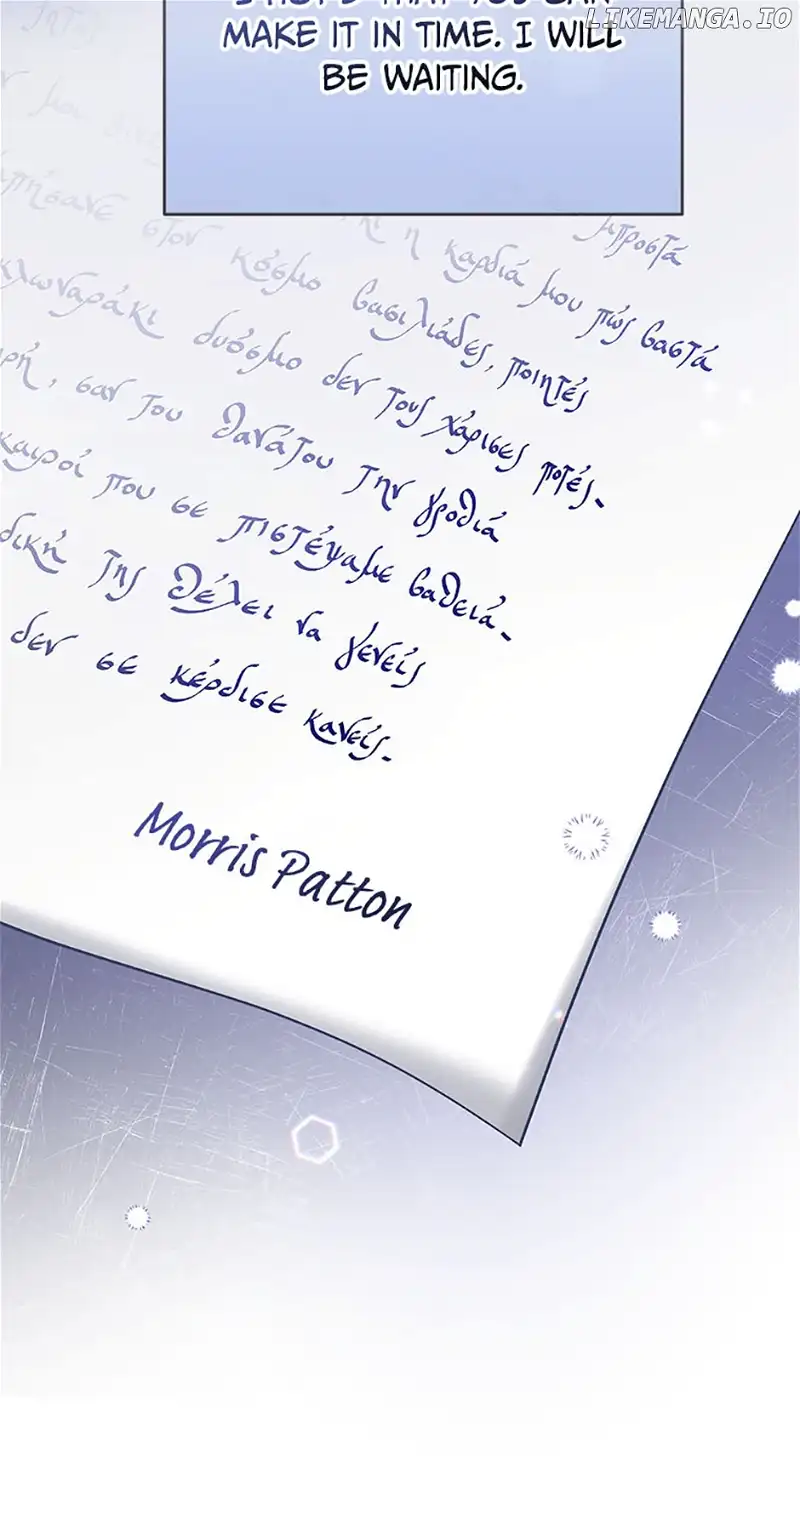 LIKEMANGA.IO
MAKE IT IN TIME. I WILL
BE WAITING.
μπροστά
η καρδιά μου πώς βαστά
στον κόσμο βασιλιάδες, ποιητές
κλωναράκι δυόσμο δεν τους χάρισες ποτές.
σαν του θανάτου την γροθιά
καιροί που σε πιστέψαμε βαθειά.
δική της θέλει να γενείς
δεν σε κέρδισε κανείς.
Morris Patton